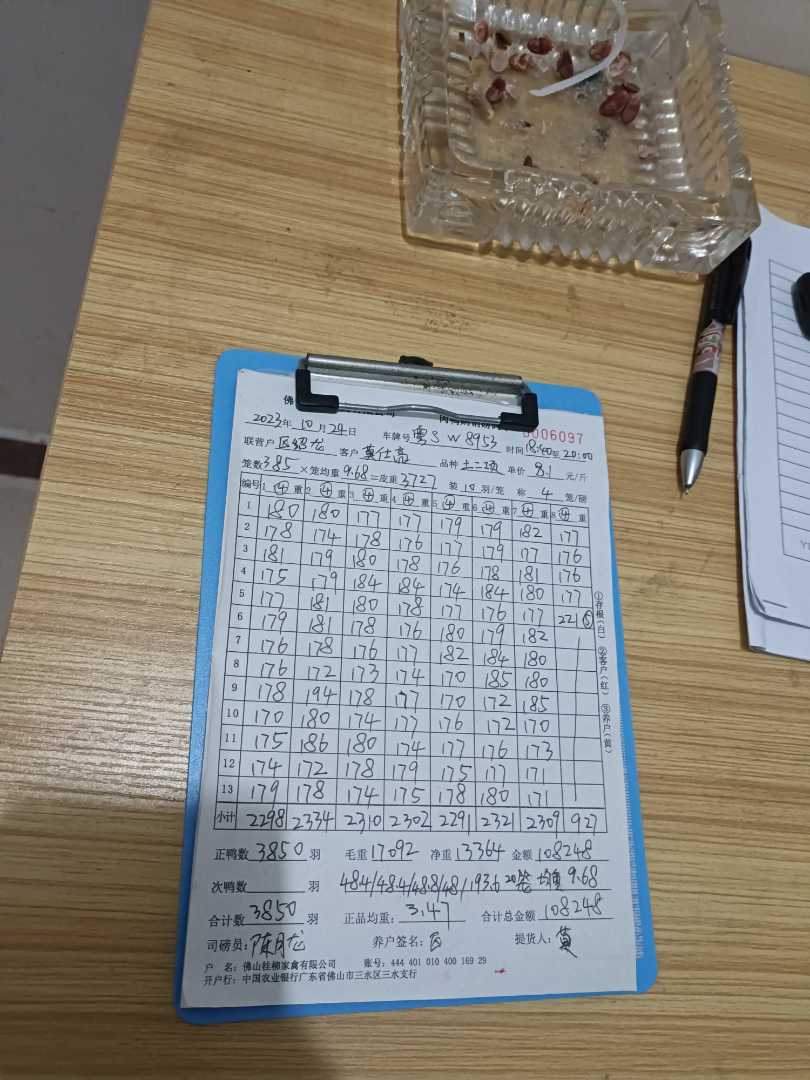 佛
0006097
2023年 10月 24日 车牌号 粤S W8953 时间 18:40至 20:00
联营户 区绍龙 客户 莫仕高 品种 土二项 单价 8.1 元/斤
笼数 385 ×笼均重 9.68 =皮重 3727 装 10 羽/笼 称 4 笼/磅
编号 1 ④ 重 2 ④ 重 3 ④ 重 4 ④ 重 5 ④ 重 6 ④ 重 7 ④ 重 8 ④ 重
1 180 180 177 177 179 179 182 177
2 178 174 178 176 177 179 177 176
3 181 179 180 178 176 178 181 176
4 175 179 184 184 174 184 180 177
5 177 181 180 178 177 176 177 221 ⑤
6 179 181 178 176 180 179 182
7 176 178 176 177 182 184 180
8 176 172 173 174 170 185 180
9 178 194 178 177 170 172 185
10 170 180 174 177 176 172 170
11 175 186 180 174 177 176 173
12 174 172 178 179 175 177 171
13 179 178 174 175 178 180 171
小计 2298 2334 2310 2302 2291 2321 2309 927
①存根(白) ②客户(红) ③养户(黄)
正鸭数 3850 羽 毛重 17092 净重 13364 金额 108248
次鸭数 羽 48.4/48.4/48.8/48/193.6 20笼 均重 9.68
合计数 3850 羽 正品均重: 3.47 合计总金额 108248
司磅员: 陈月龙 养户签名: 区 提货人: 莫
户 名: 佛山桂柳家禽有限公司 账号: 444 401 010 400 169 29
开户行: 中国农业银行广东省佛山市三水区三水支行